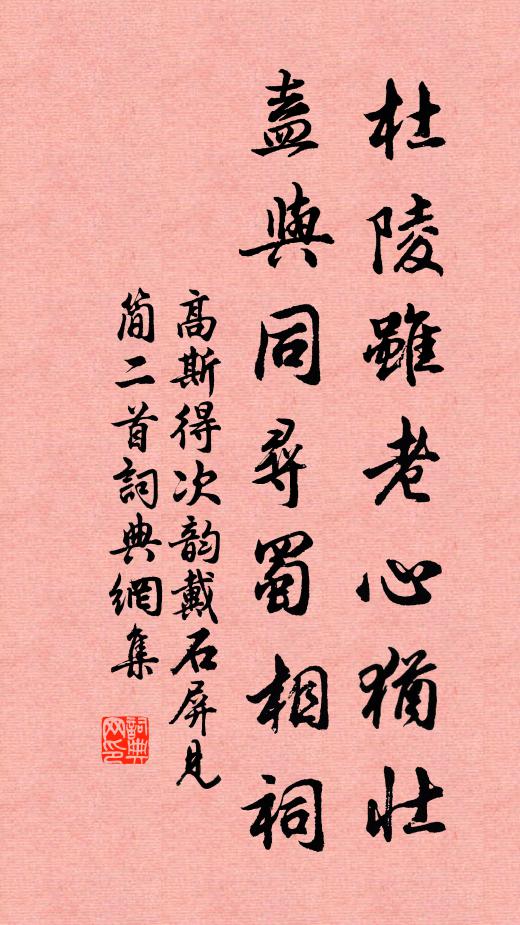 杜陵雖老心猶壯
盍與同尋蜀相祠
高斯得次韵戴石屏見
简二首詞典網集
詞典
网印